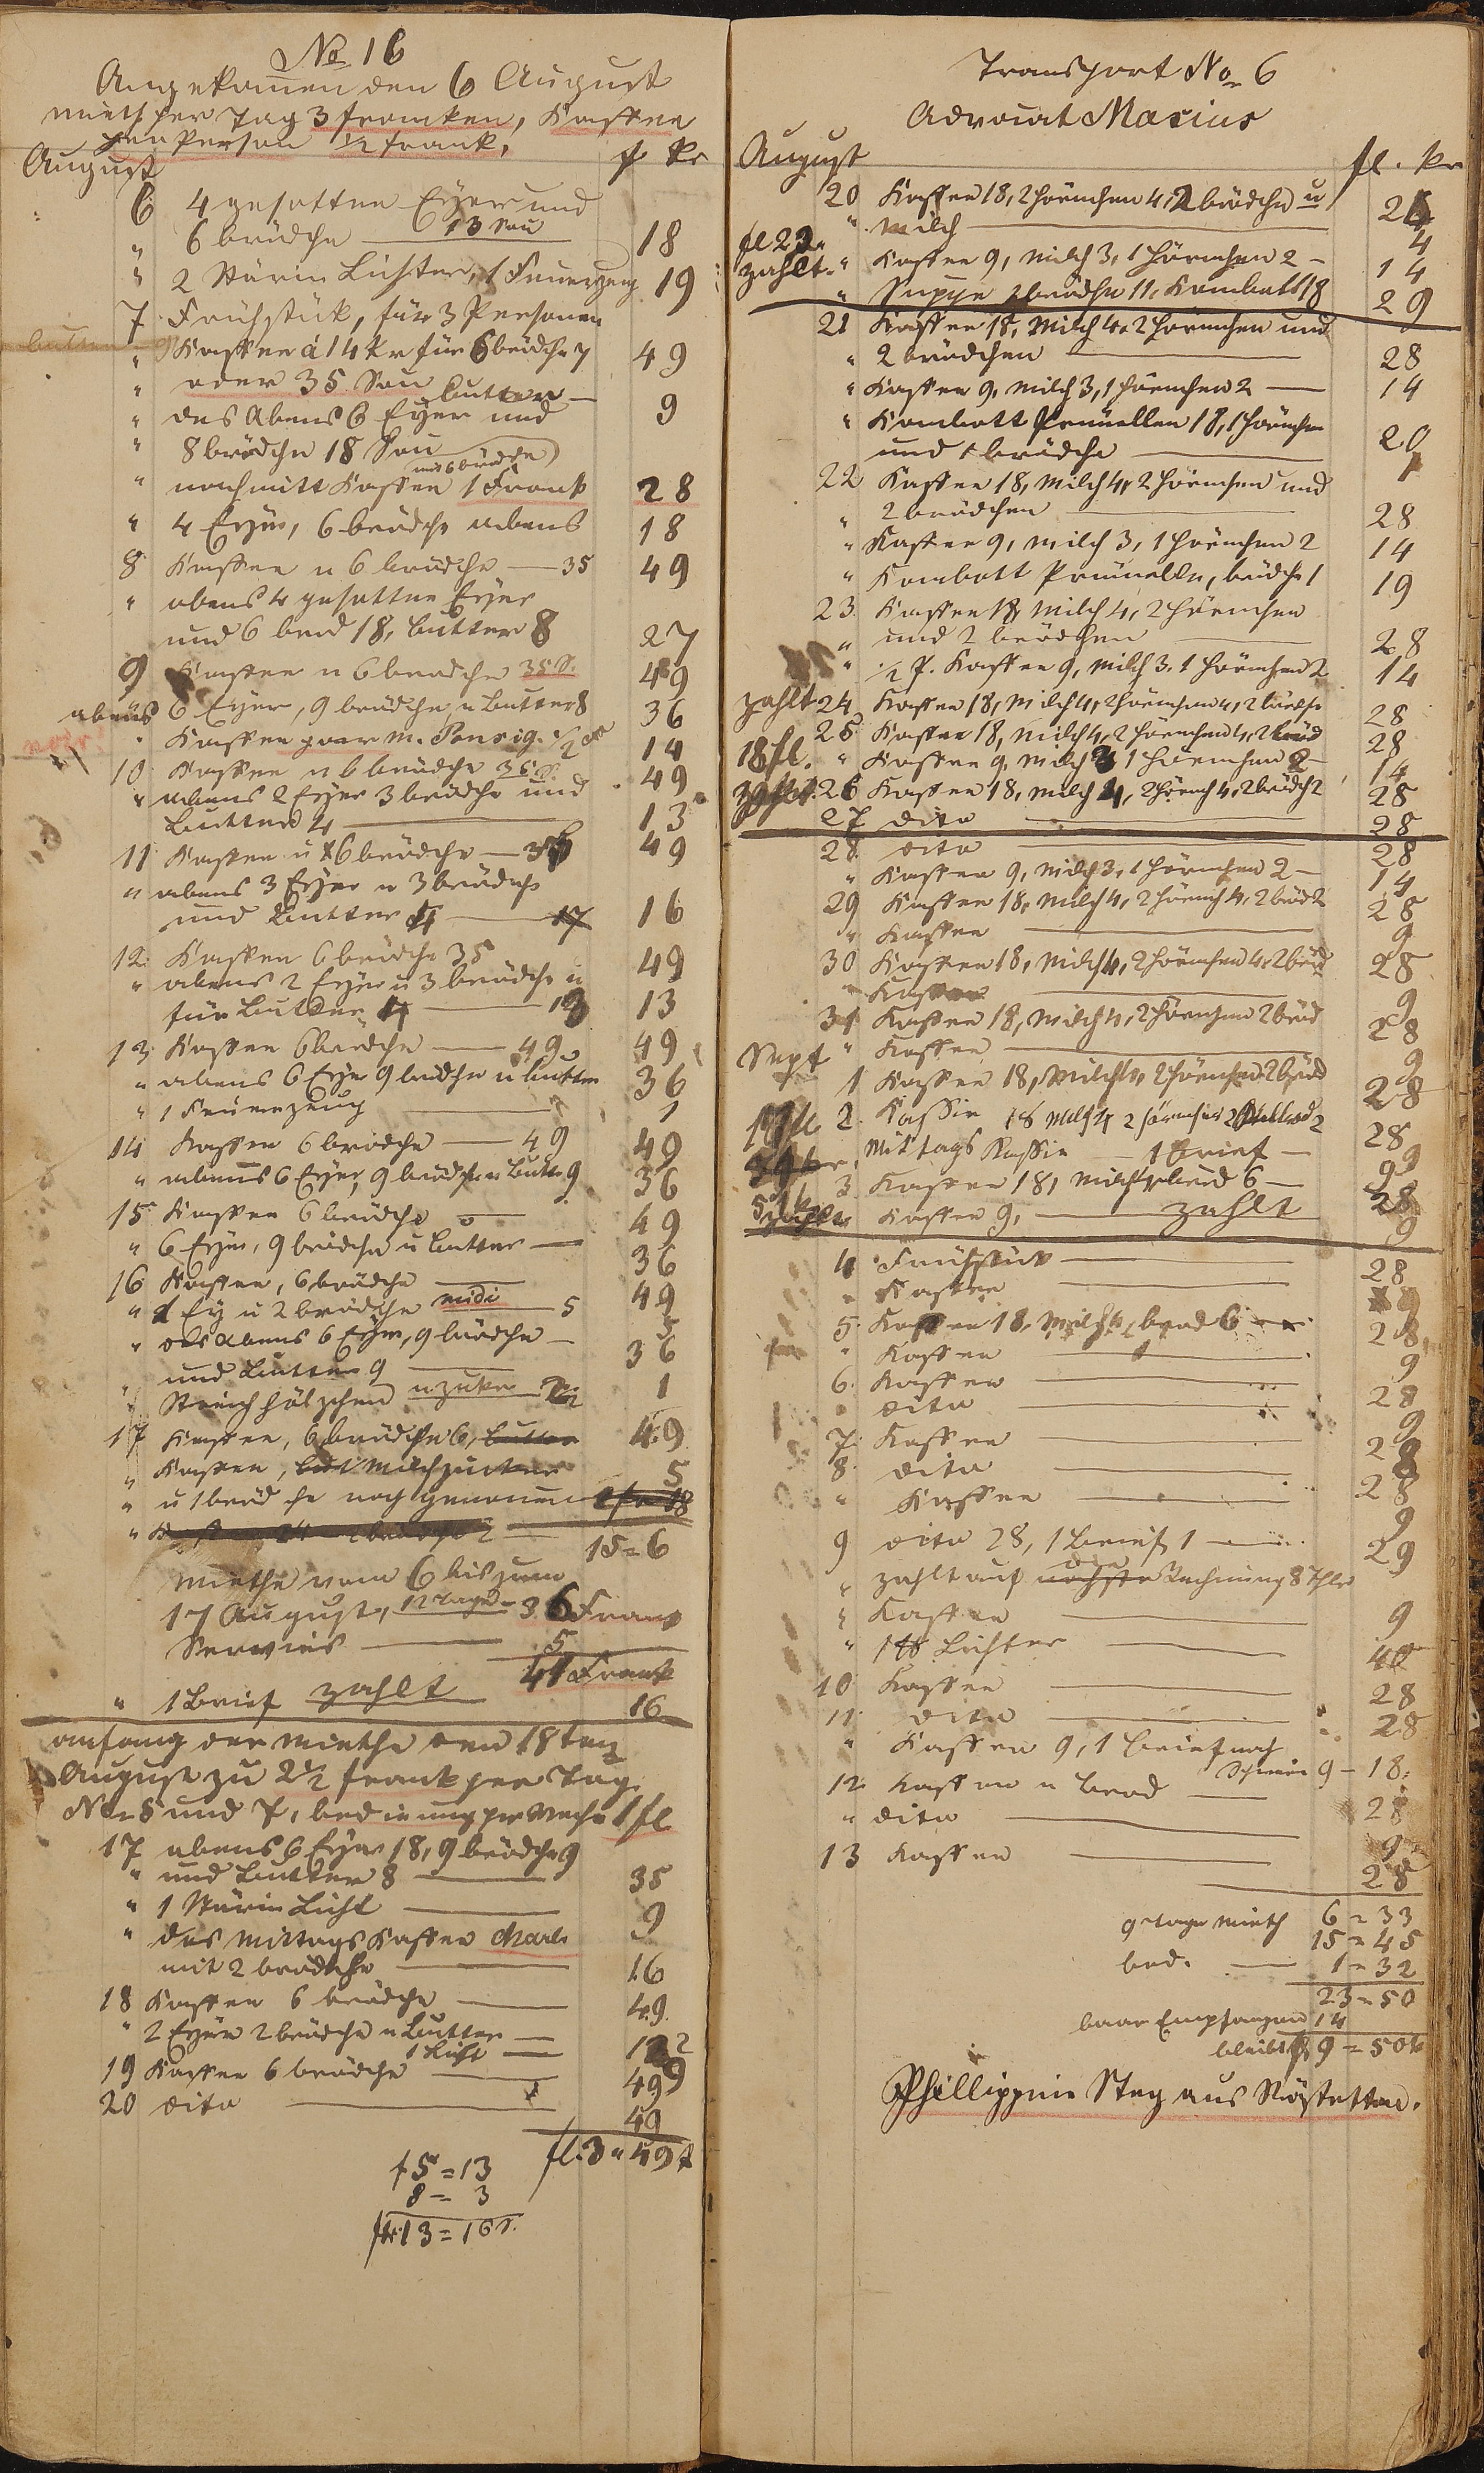 No 16
Angekomen den 6 August
mieth per Tag 3 franken, Kaffee
per Person 1/2 frank,
August f kr
6 4 gesottne Eyer und
" 6 brödche 13 Sou 18
" 2 Stärin Lichter, 1 Feuerzeug 19
7 Frühstük, für 3 Personen
" Kaffee á 14 kr für 6 brödche 7 49
" oder 35 Sou butter —
" des Abens 6 Eyer und 9
" 8 brödche 18 Sou
mit 6 brödche
" nachmitt Kaffee 1 Frank 28
" 4 Eyer, 6 brödche abens 18
8 Kaffee u 6 brödche — 35 49
" abens 4 gesottne Eyer
und 6 brod 18, butter 8 27
9 Kaffee u 6 brodche 35 S. 49
abens 6 Eyer, 9 brödche, u butter 8 36
" Kaffee 14
10 Kaffee u 6 brödche 35 S. 49
" abens 2 Eyer 3 brödche und
butter 4 — 13
11 Kaffee u 6 brödche — 35 49
" abens 3 Eyer u 3 brödche
und Butter 4 — 17 16
12 Kaffee 6 brödche 35 49
" abens 2 Eyer u 3 brödche u
für butter 4 — 13 13
13 Kaffee 6 brödche — 49 49
" abens 6 Eyer 9 brödche u butter 36
" 1 Feuerzeug — 1
14 Kaffee 6 brödche — 49 49
" abens 6 Eyer, 9 brödche u Butter 9 36
15 Kaffee 6 brödche — 49
" 6 Eyer, 9 brödche u butter — 36
16 Kaffee, 6 brödche — 49
" 1 Ey u 2 brödche midi 5 5
" des Abens 6 Eyer, 9 brödche —
und butter 9 — 36
" Streichhölzchen u zuker 1
17 Kaffee, 6 brödche 6, butter 49
" Kaffee, Milch zucker 5
" u 1 bröd che noch genomen 18
15 = 6
Miethe vom 6 bis zum
17 August, 12 Tage = 36 Frank
Servies — 5
41 Frank
" 1 Brief zahlt 16
anfang der Miethe den 18ten
August zu 2 1/2 frank per Tag
No 5 und 7, bedienung per Woche 1 fl
17 abens 6 Eyer 18, 9 brödche 9
" und butter 8 — 35
" 1 Stärin Licht — 9
" des Mittags Kaffee
mit 2 brödche — 16
18 Kaffee 6 brödche — 49
" 2 Eyer 2 brödche u butter — 12
1 Licht — 9
19 Kaffee 6 brödche — 49
20 dito — 49
fl. 3 " 49 k
f 5 = 13
8 = 3
f. 13 = 16
Transport No 6
Advocat Marius
August fl. kr
20 Kaffee 18, 2 hörnchen 4, 2 brödche u
" Milch — 4
fl 23 "
zahlt " Kaffee 9, milch 3, 1 hörnchen 2 — 14
" Suppe 2 brödche 11, Kombott 18 29
21 Kaffee 18, Milch 4, 2 hörnchen und
" 2 brödchen — 28
" Kaffee 9, milch 3, 1 hörnchen 2 — 14
" Kombott Prünellen 18, 1 hörnchen
und 1 brödche — 20
22 Kaffee 18, milch 4, 2 hörnchen und
" 2 brödchen — 28
" Kaffee 9, milch 3, 1 hörnchen 2 14
" Kombott Prünelle, brödche 1 19
23 Kaffee 18, Milch 4, 2 hörnchen
" und 2 brödchen — 28
" 1/2 P. Kaffee 9, Milch 3, 1 hörnchen 2 14
zahlt 24 Kaffee 18, Milch 4, 2 hörnchen 4, 2 brödche 28
25 Kaffee 18, Milch 4, 2 hörnchen 4, 2 bröd 28
18 fl. " Kaffee 9, milch 3 1 hörnchen 2 — 14
26 Kaffee 18, Milch 4, 2 hörnch 4, 2 brödch 2 28
27 dito — 28
28 dito — 28
" Kaffee 9, Milch 3, 1 hörnchen 2 — 14
29 Kaffee 18, Milch 4, 2 hörnch 4, 2 bröd 2 28
" Kaffee — 9
30 Kaffee 18, Milch 4, 2 hörnchen 4, 2 bröd 28
" Kaffee — 9
31 Kaffee 18, Milch 4, 2 hörnchen 2 bröd 28
Sept " Kaffee — 9
1 Kaffee 18, Milch 4, 2 hörnchen 2 bröd 28
2 Kaffee 18 Milch 4 2 hörnchen 2 28
Mittags Kaffee — 1 Brief — 9
3 Kaffee 18, Milch 4, brod 6 — 28
Kaffee 9, — zahlt 9
4 Frühstük — 28
" Kaffee — 9
5 Kaffee 18, Milch 4, brod 6 — 28
" Kaffee — 9
6 Kaffee — 28
" dito — 9
7 Kaffee — 28
8 dito — 28
" Kaffee — 9
9 dito 28, 1 Brief 1 — 29
" zahlt auf die nächste Rechnung 8 Thlr
" Kaffee — 9
" 1 ℔ Lichter — 40
10 Kaffee — 28
11 dito — 28
" Kaffee 9, 1 brief nach
Schweiz 9 — 18
12 Kaffee u brod — 28
" dito — 9
13 Kaffee — 28
6 = 33
9 tage Mieth 15 = 45
bed. — 1 = 32
23 = 50
baar Empfangen 14
bleibt fl 9 = 50 k
Phillippine Steg aus